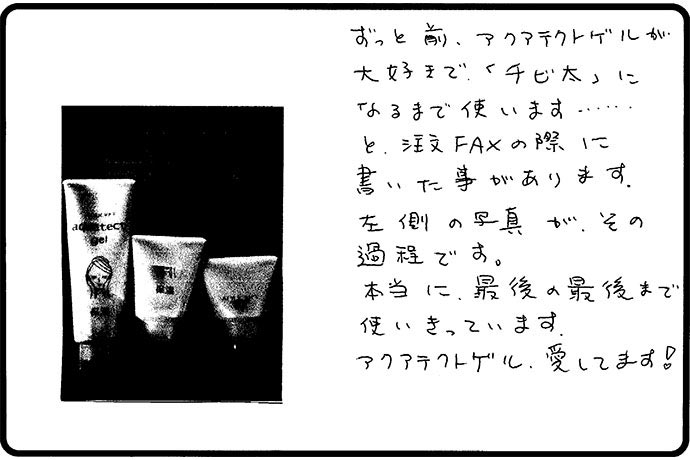 ずっと前、アクアテクトゲルが
大好きで、「チビ太」に
なるまで使います……
と、注文FAXの際に
書いた事があります。
左側の写真が、その
過程です。
本当に、最後の最後まで
使いきっています。
アクアテクトゲル、愛してます!
aquatect
gel